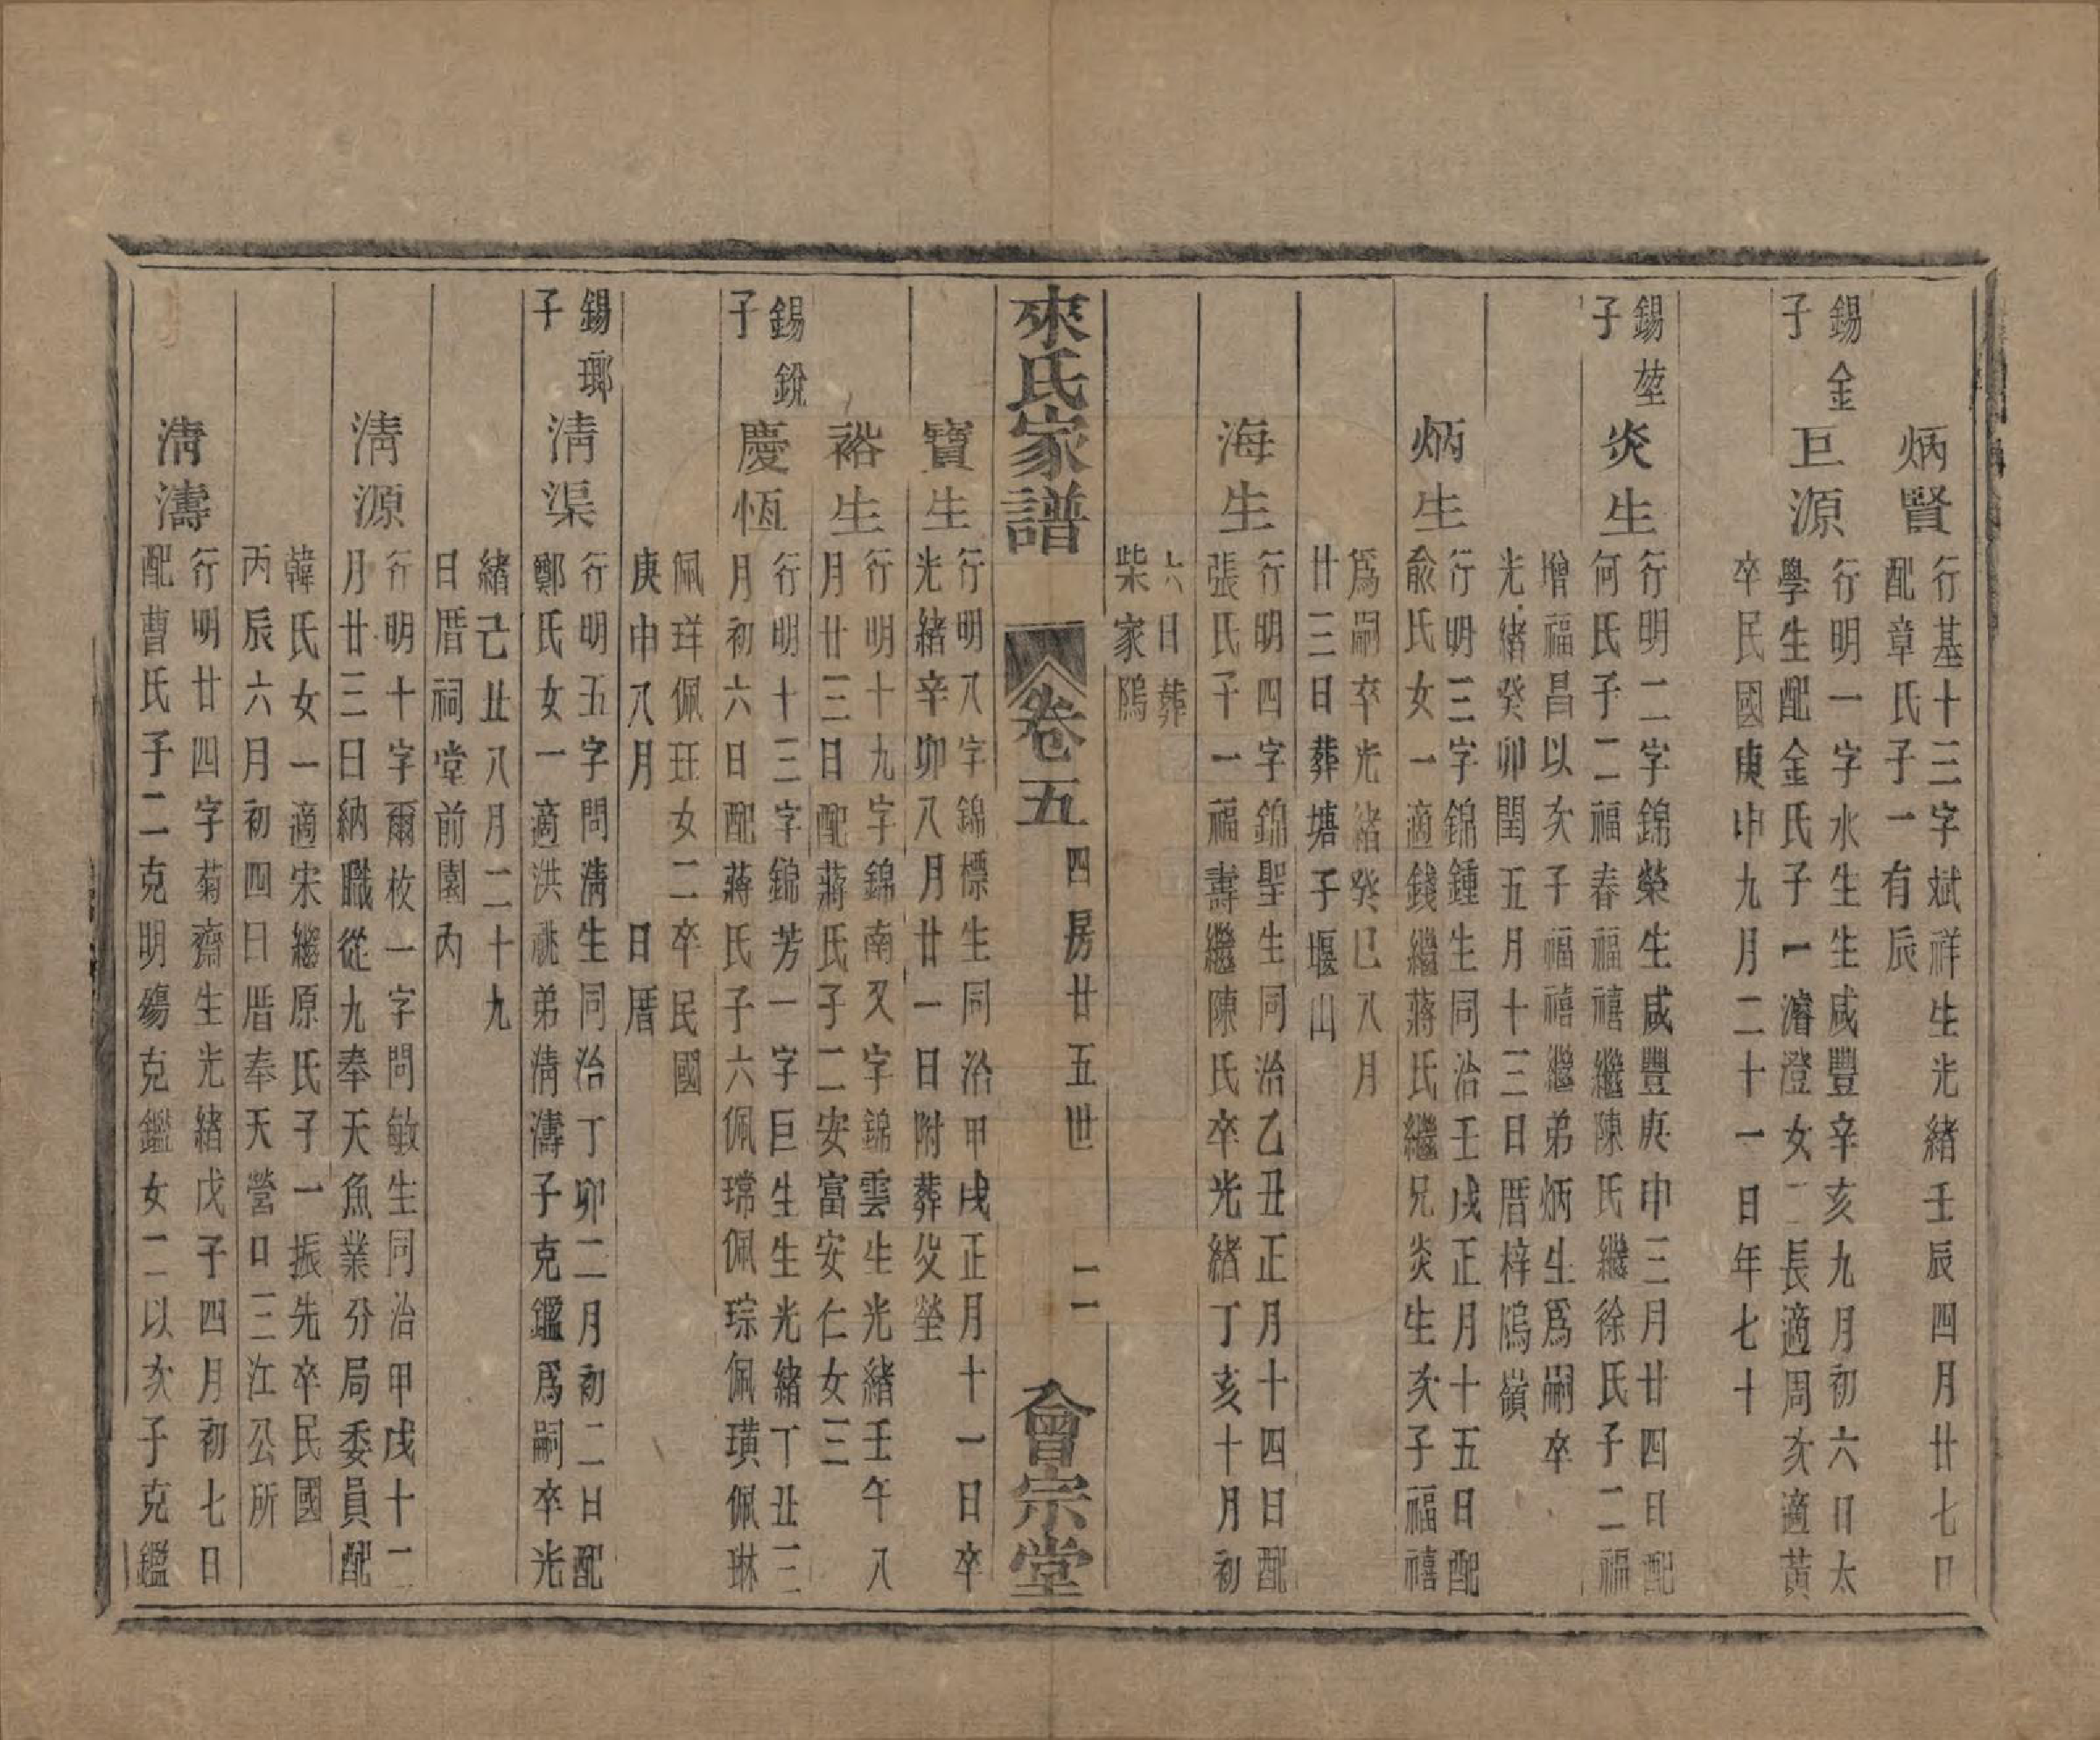 炳賢
行基十三字斌祥生光緒壬辰四月廿七日
配章氏子一有辰
錫金
子
巨源
行明一字水生生咸豐辛亥九月初六日太
學生配金氏子一濬澄女二長適周次適黃
卒民國庚申九月二十一日年七十
錫堃
子
炎生
行明二字錦榮生咸豐庚申三月廿四日配
何氏子二福春福禧繼陳氏繼徐氏子二福
增福昌以次子福禧繼弟炳生為嗣卒
光緒癸卯閏五月十三日厝梓隖嶺
炳生
行明三字錦鍾生同治壬戌正月十五日配
俞氏女一適錢繼蔣氏繼兄炎生次子福禧
為嗣卒光緒癸巳八月
廿三日葬塘子堰山
海生
行明四字錦聖生同治乙丑正月十四日配
張氏子一福壽繼陳氏卒光緒丁亥十月初
六日葬
柴家隖
來氏家譜
卷五
四房廿五世
二
會宗堂
寶生
行明八字錦標生同治甲戌正月十一日卒
光緒辛卯八月廿一日附葬父塋
裕生
行明十九字錦南又字錦雲生光緒壬午八
月廿三日配蔣氏子二安富安仁女三
錫銳
子
慶恆
行明十三字錦芳一字巨生生光緒丁丑三
月初六日配蔣氏子六佩瑺佩琮佩璜佩琳
佩珜佩玨女二卒民國
庚申八月 日厝
錫瑯
子
清渠
行明五字問淸生同治丁卯二月初二日配
鄭氏女一適洪祧弟清濤子克鑑為嗣卒光
緒己丑八月二十九
日厝祠堂前園內
清源
行明十字爾枚一字問敏生同治甲戌十二
月廿三日納職從九奉天魚業分局委員配
韓氏女一適宋繼原氏子一振先卒民國
丙辰六月初四日厝奉天營口三江公所
清濤
行明廿四字菊齋生光緒戊子四月初七日
配曹氏子二克明殤克鑑女二以次子克鑑